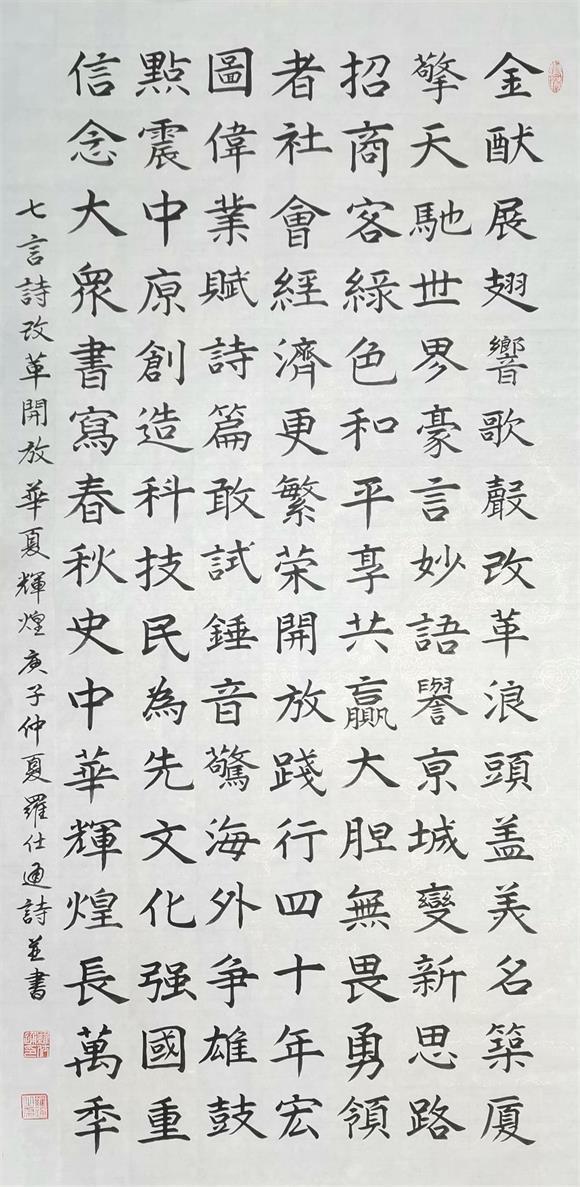 金猷展翅響歌聲改革浪頭盖美名築厦
擎天馳世界豪言妙語譽京城變新思路
招商客綠色和平享共贏大胆無畏勇領
者社會經濟更繁荣開放踐行四十年宏
圖偉業賦詩篇敢試錘音驚海外争雄鼓
點震中原創造科技民為先文化强國重
信念大衆書寫春秋史中華輝煌長萬季
七言詩改革開放華夏輝煌庚子仲夏羅仕通詩并書